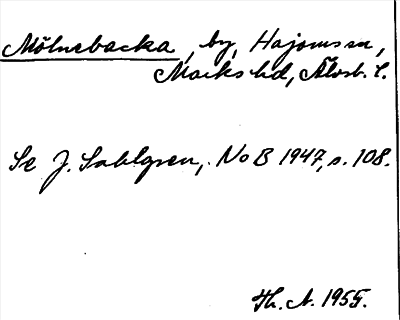 Mölnebacka, by, Hajoms sn,
Marks hd, Älvsb. l.
Se J. Sahlgren, NoB 1947, s. 108.
Th. A. 1955.